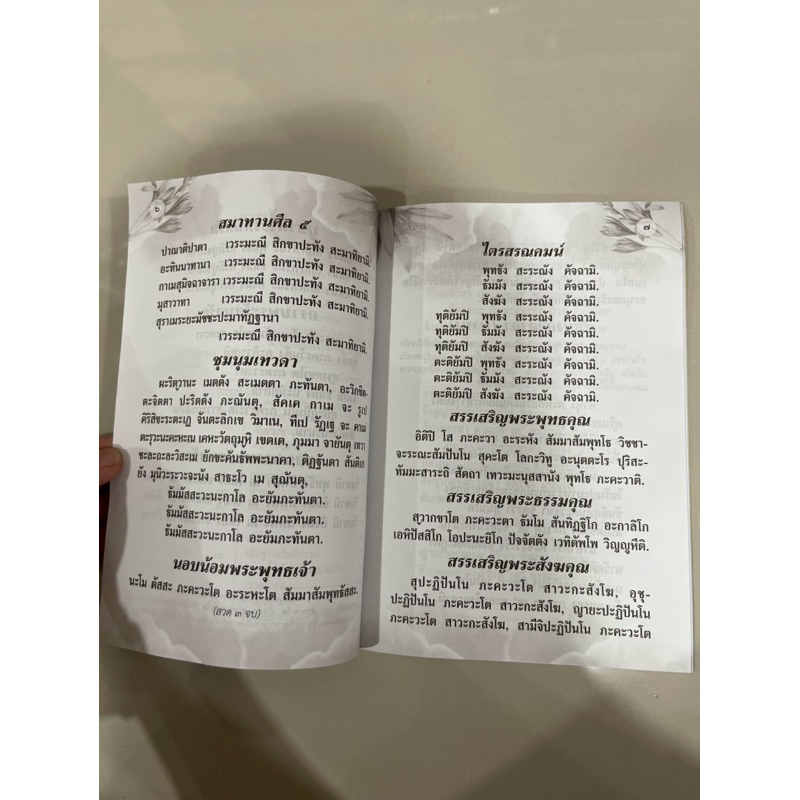 ๖
สมาทานศีล ๕
ปาณาติปาตา เวระมะณี สิกขาปะทัง สะมาทิยามิ.
อะทินนาทานา เวระมะณี สิกขาปะทัง สะมาทิยามิ.
กาเมสุมิจฉาจารา เวระมะณี สิกขาปะทัง สะมาทิยามิ.
มุสาวาทา เวระมะณี สิกขาปะทัง สะมาทิยามิ.
สุราเมระยะมัชชะปะมาทัฏฐานา
เวระมะณี สิกขาปะทัง สะมาทิยามิ.
ชุมนุมเทวดา
ผะริตฺวานะ เมตตัง สะเมตตา ภะทันตา, อะวิกขิต-
ตะจิตตา ปะริตตัง ภะณันตุ, สัคเค กาเม จะ รูเป
คิริสิขะระตะเฏ จันตะลิกเข วิมาเน, ทีเป รัฏเฐ จะ คาเม
ตะรุวะนะคะหะเน เคหะวัตถุมฺหิ เขตเต, ภุมมา จายันตุ เทวา
ชะละถะละวิสะเม ยักขะคันธัพพะนาคา, ติฏฐันตา สันติเก
ยัง มุนิวะระวะจะนัง สาธะโว เม สุณันตุ,
ธัมมัสสะวะนะกาโล อะยัมภะทันตา.
ธัมมัสสะวะนะกาโล อะยัมภะทันตา.
ธัมมัสสะวะนะกาโล อะยัมภะทันตา.
นอบน้อมพระพุทธเจ้า
นะโม ตัสสะ ภะคะวะโต อะระหะโต สัมมาสัมพุทธัสสะ.
(สวด ๓ จบ)
๗
ไตรสรณคมน์
พุทธัง สะระณัง คัจฉามิ.
ธัมมัง สะระณัง คัจฉามิ.
สังฆัง สะระณัง คัจฉามิ.
ทุติยัมปิ พุทธัง สะระณัง คัจฉามิ.
ทุติยัมปิ ธัมมัง สะระณัง คัจฉามิ.
ทุติยัมปิ สังฆัง สะระณัง คัจฉามิ.
ตะติยัมปิ พุทธัง สะระณัง คัจฉามิ.
ตะติยัมปิ ธัมมัง สะระณัง คัจฉามิ.
ตะติยัมปิ สังฆัง สะระณัง คัจฉามิ.
สรรเสริญพระพุทธคุณ
อิติปิ โส ภะคะวา อะระหัง สัมมาสัมพุทโธ วิชชา-
จะระณะสัมปันโน สุคะโต โลกะวิทู อะนุตตะโร ปุริสะ-
ทัมมะสาระถิ สัตถา เทวะมะนุสสานัง พุทโธ ภะคะวาติ.
สรรเสริญพระธรรมคุณ
สฺวากขาโต ภะคะวะตา ธัมโม สันทิฏฐิโก อะกาลิโก
เอหิปัสสิโก โอปะนะยิโก ปัจจัตตัง เวทิตัพโพ วิญญูหีติ.
สรรเสริญพระสังฆคุณ
สุปะฏิปันโน ภะคะวะโต สาวะกะสังโฆ, อุชุ-
ปะฏิปันโน ภะคะวะโต สาวะกะสังโฆ, ญายะปะฏิปันโน
ภะคะวะโต สาวะกะสังโฆ, สามีจิปะฏิปันโน ภะคะวะโต